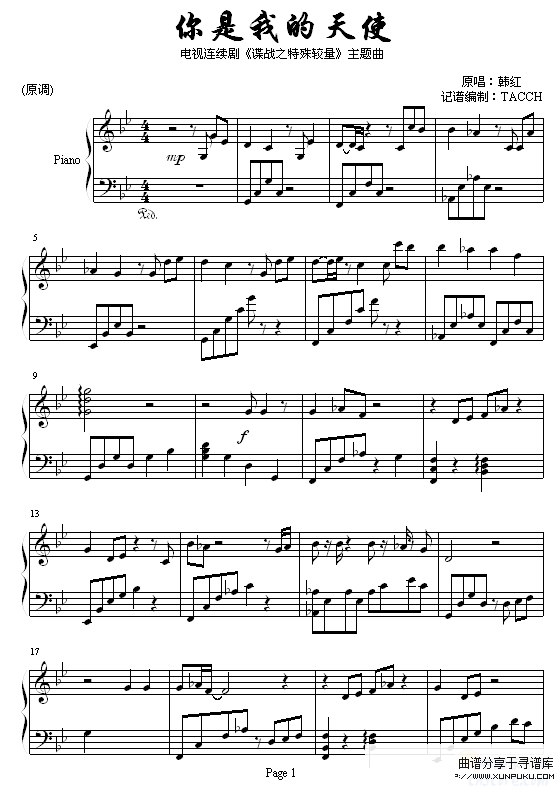 你是我的天使
电视连续剧《谍战之特殊较量》主题曲
原唱：韩红
(原调)
记谱编制：TACCH
Piano
mp
5
9
f
13
17
Page 1
曲谱分享于寻谱库
www.XUNPUKU.com